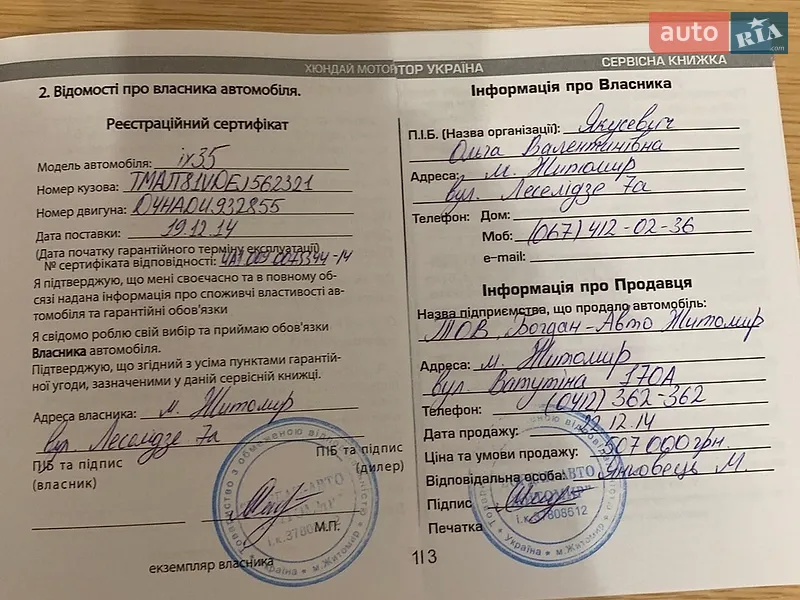 auto RIA .com
ХЮНДАЙ МОТОР
2. Відомості про власника автомобіля.
Реєстраційний сертифікат
Модель автомобіля: ix35
Номер кузова: TMAJT81VDEJ562321
Номер двигуна: D4HADU932855
Дата поставки: 19.12.14
(Дата початку гарантійного терміну експлуатації)
№ сертифіката відповідності:
Я підтверджую, що мені своєчасно та в повному об-
сязі надана інформація про споживчі властивості ав-
томобіля та гарантійні обов'язки
Я свідомо роблю свій вибір та приймаю обов'язки
Власника автомобіля.
Підтверджую, що згідний з усіма пунктами гарантій-
ної угоди, зазначеними у даній сервісній книжці.
Адреса власника: м. Житомир
вул. Леселідзе 7а
ПІБ та підпис
(власник)
ПІБ та підпис
(дилер)
М.П.
екземпляр власника
ТОР УКРАЇНА СЕРВІСНА КНИЖКА
Інформація про Власника
П.І.Б. (Назва організації): Якусевич
Ольга Валентинівна
Адреса: м. Житомир
вул. Леселідзе 7а
Телефон: Дом:
Моб: (067) 412-02-36
e-mail:
Інформація про Продавця
Назва підприємства, що продало автомобіль:
ТОВ Богдан-Авто Житомир
Адреса: м. Житомир
вул. Ватутіна 170А
Телефон: (0412) 362-362
Дата продажу: 22.12.14
Ціна та умови продажу: 307 000 грн.
Відповідальна особа: Янковець М.
Підпис
Печатка
і.к.37808612
Україна * м.Житомир
113